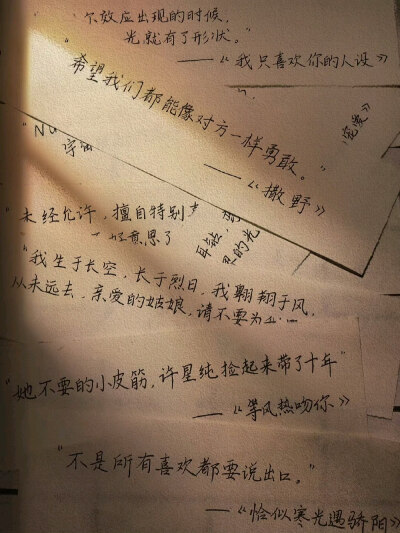 尔效应出现的时候，
光就有了形状。"
——《我只喜欢你的人设》
希望我们都能像对方一样勇敢。"
——《撒野》
"未经允许，擅自特别
"我生于长空，长于烈日，我翱翔于风，
从未远去，亲爱的姑娘，请不要为
"她不要的小皮筋，许星纯捡起来带了十年"
——《等风热吻你》
"不是所有喜欢都要说出口。"
——《恰似寒光遇骄阳》